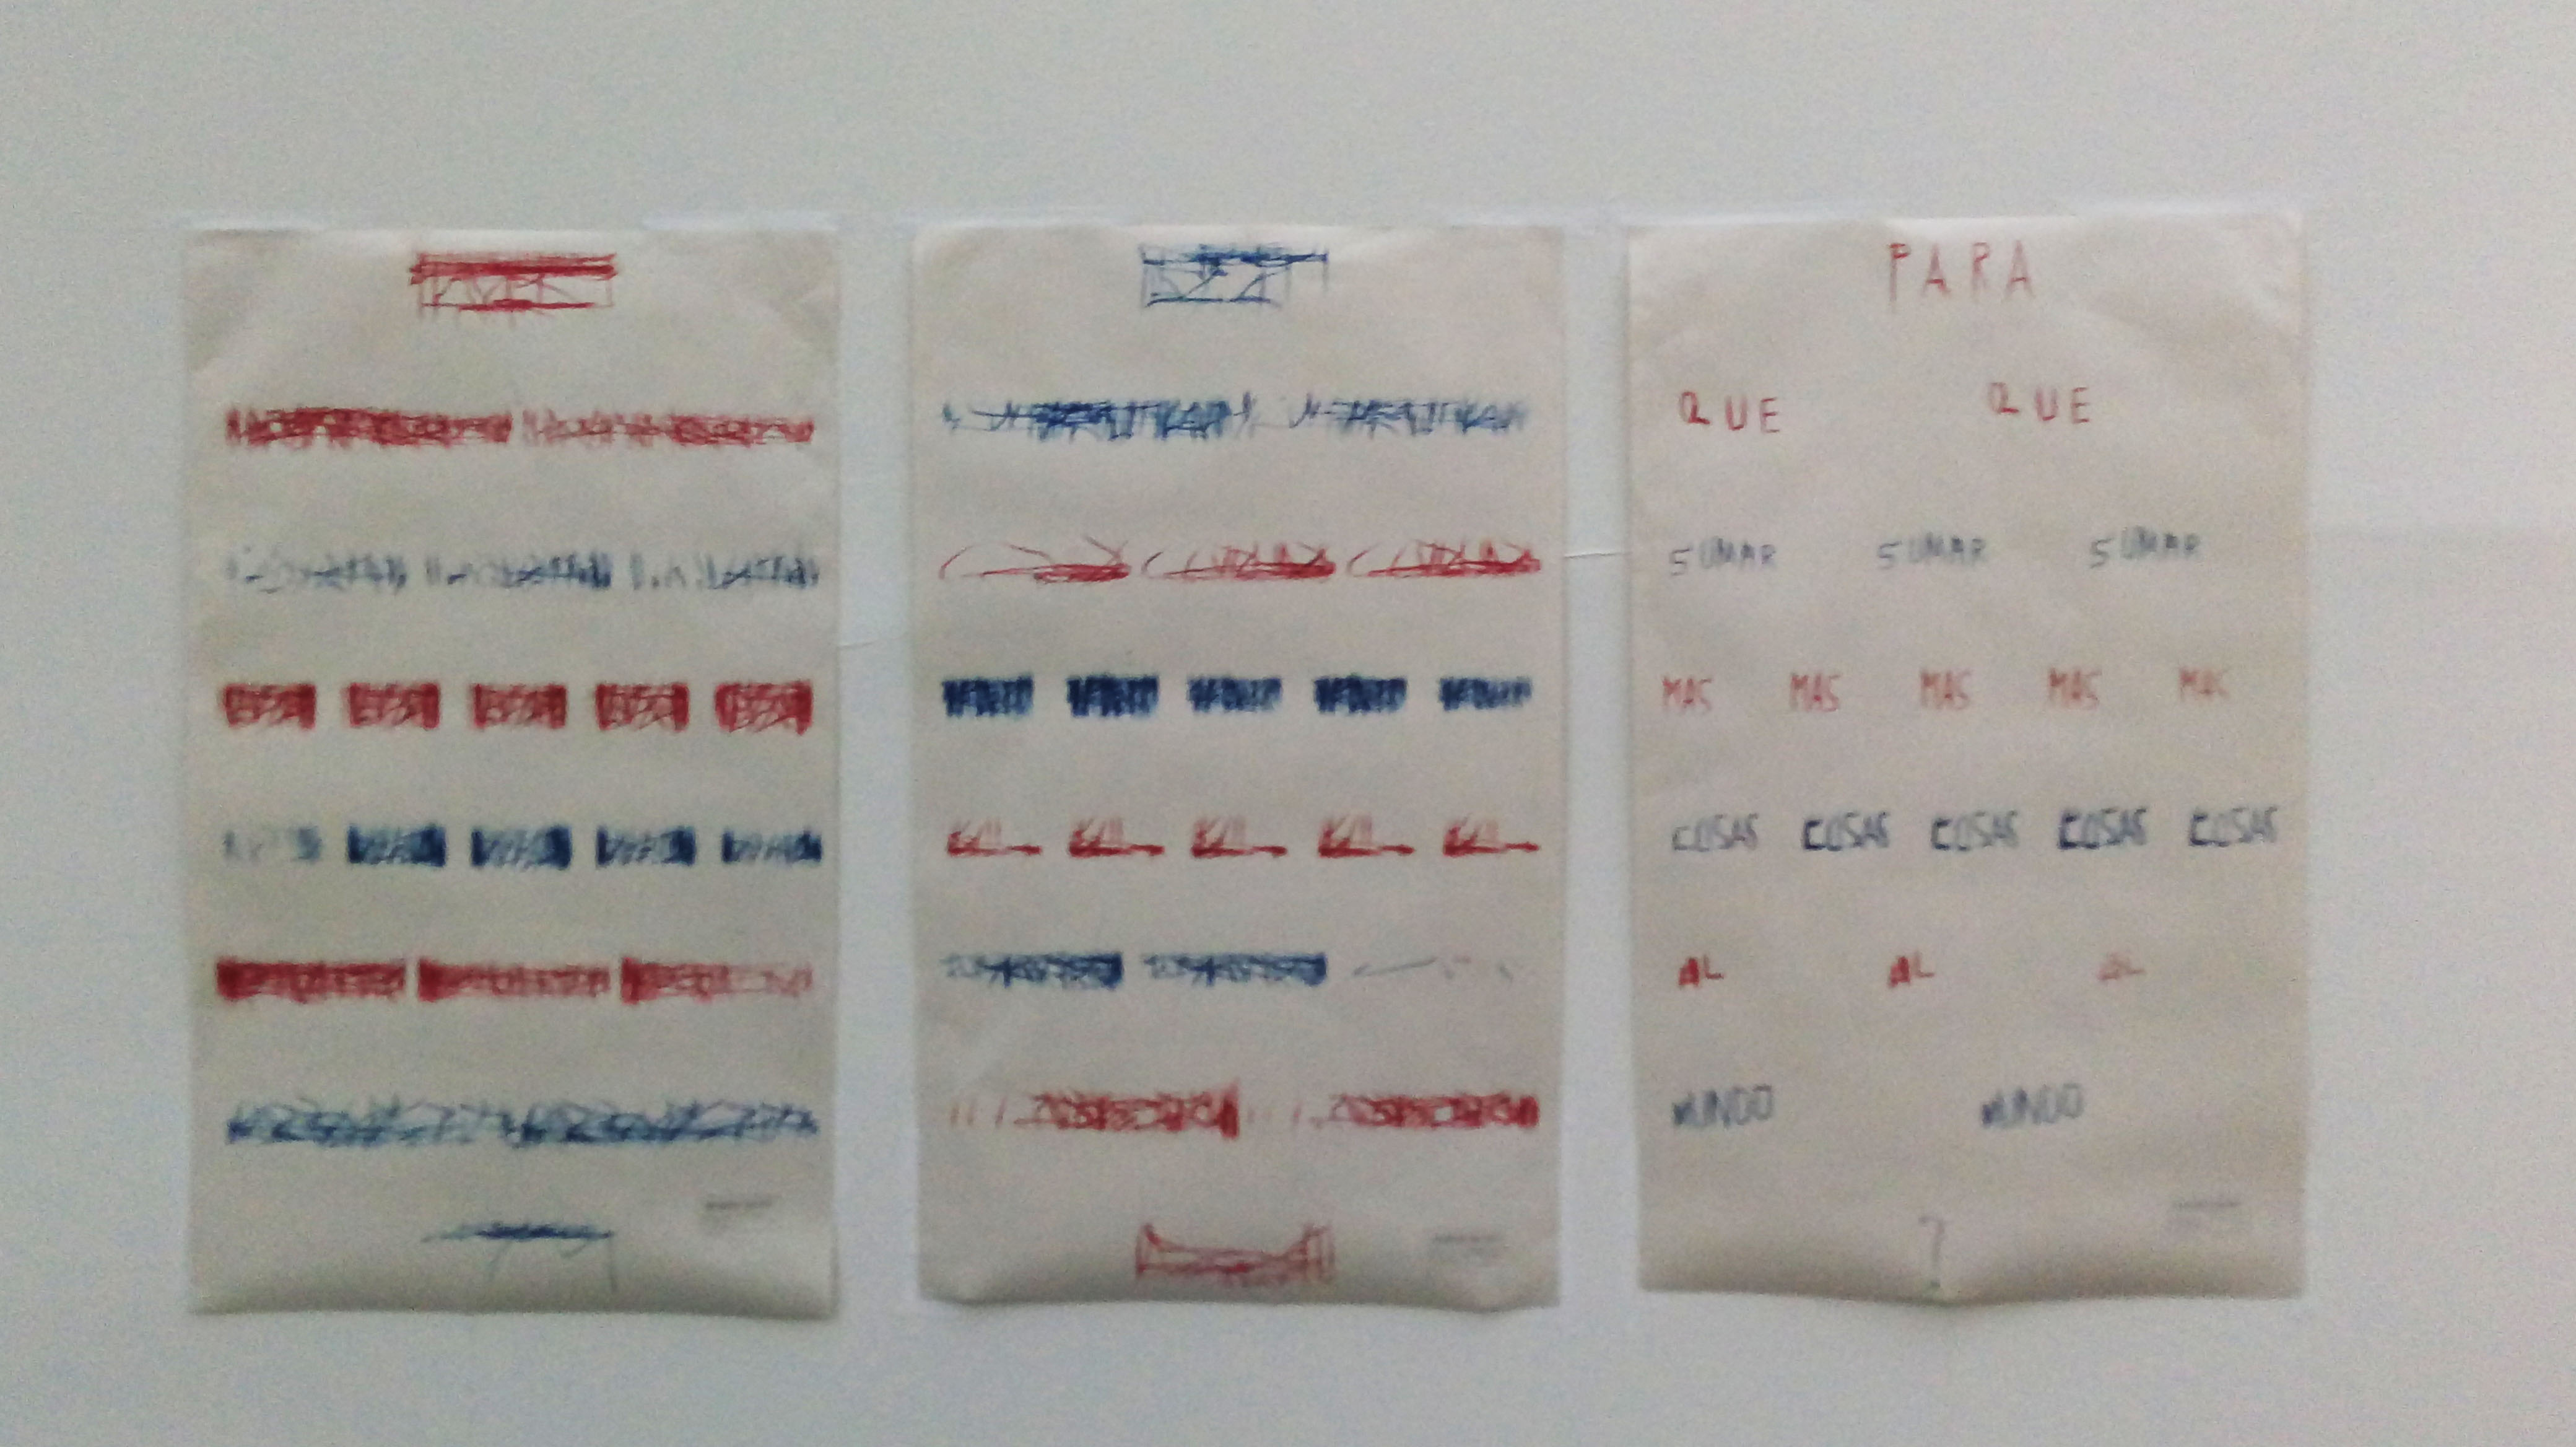 PARA
QUE QUE
SUMAR SUMAR SUMAR
MAS MAS MAS MAS MAS
COSAS COSAS COSAS COSAS COSAS
AL AL AL
MUNDO MUNDO
?